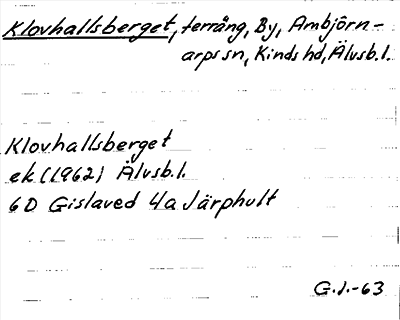 Klovhallsberget, terräng, By, Ambjörn-
arps sn, Kinds hd, Älvsb.l.
Klovhallsberget
ek (1962) Älvsb.l.
6D Gislaved 4a Järphult
G.J.-63